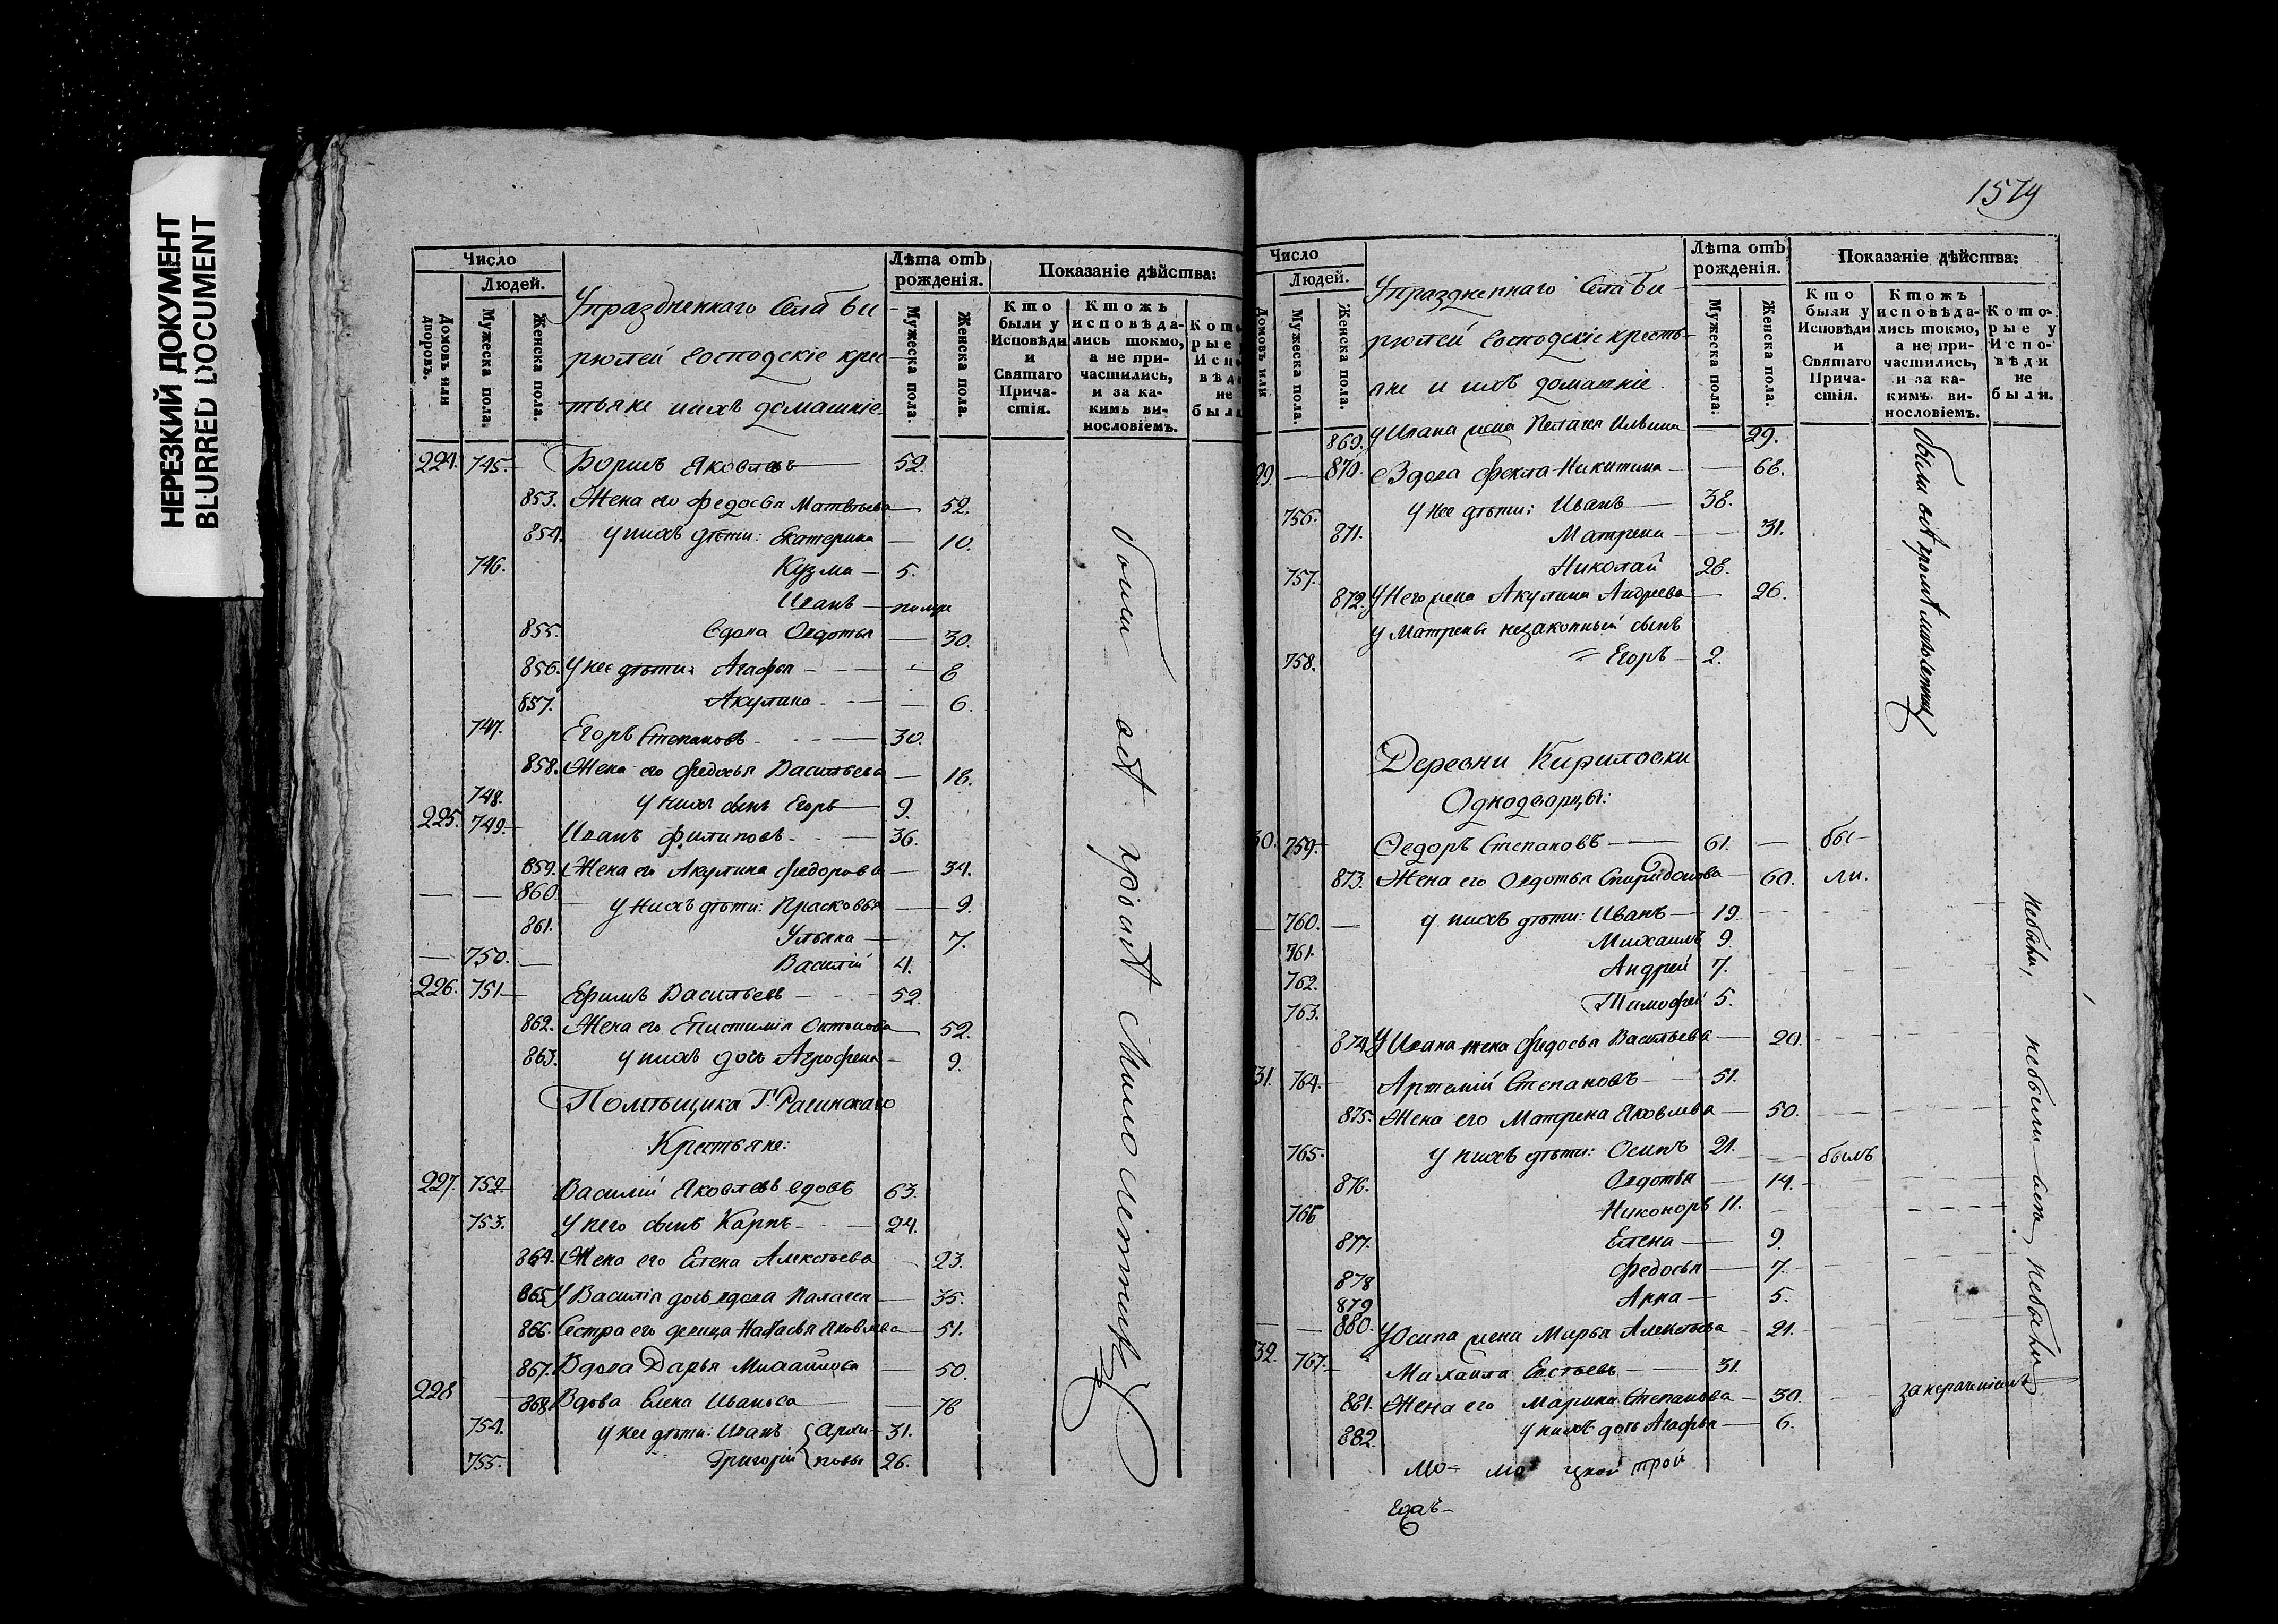 НЕРЕЗКИЙ ДОКУМЕНТ
BLURRED DOCUMENT
Число
Людей.
Домовъ или дворовъ.
Мужеска пола.
Женска пола.
Упраздненнаго Села Би-
рюлей Господскіе крес-
тьяне и ихъ домашніе.
Лѣта отъ рожденія.
Мужеска пола.
Женска пола.
Показаніе дѣйства:
Кто были у Исповѣди и Святаго Прича-стія.
Ктожъ исповѣда-лись токмо, а не при-частились, и за ка-кимъ ви-нословіемъ.
224. 745. Борисъ Яковлевъ 52.
853. Жена его Федосья Матвѣева 52.
854. у нихъ дѣти: Екатерина 10.
746. Кузма 5.
Иванъ
855. вдова Авдотья 30.
856. У нее дѣти: Агафья 8
857. Акулина 6.
747. Егоръ Степановъ 30.
858. Жена его Федосья Васильева 18.
748. у нихъ сынъ Егоръ 9.
225. 749. Иванъ Филиповъ 36.
859. Жена его Акулина Федорова 34.
860. у нихъ дѣти: Прасковья 9.
861. Ульяна 7.
750. Василій 4.
226. 751 Ефимъ Васильевъ 52.
862. Жена его Епистимія 52.
863. у нихъ дочь Агрофена 9.
Помѣщика Г.
Крестьяне:
227. 752. Василій Яковлевъ вдовъ 63.
753. У него сынъ Карпъ 24.
864. Жена его Елена Алексѣева 23.
865. У Василія дочь вдова Палагея 35.
866. Сестра его девица Наталья Яковлева 51.
867. Вдова Дарья Михайлова 50.
228 868. Вдова Елена Иванова 78
754. у нее дѣти: Иванъ Архи- 31.
755. Григорій повы 26.
были всѣ кромѣ Малолетнихъ
1579
Число
Людей.
Домовъ или
Мужеска пола.
Женска пола.
Упраздненнаго Села Би-
рюлей Господскіе кресть-
яне и ихъ домашніе.
Лѣта отъ рожденія.
Мужеска пола.
Женска пола.
Показаніе дѣйства:
Кто были у Исповѣди и Святаго Прича-стія.
Ктожъ исповѣда-лись токмо, а не при-частились, и за ка-кимъ ви-нословіемъ.
Кото-рые у Испо-вѣди не были.
869. У Ивана жена Пелагея Ильина 29.
29. 870. Вдова Фекла Никитина 68.
756. у нее дѣти: Иванъ 38.
871. Матрена 31.
757. Николай 28.
872. У Него жена Акулина Андреева 26.
у Матрены незаконный сынъ
758. Егоръ 2.
были всѣ кромѣ малолетнихъ
Деревни Кириловки
Однодворцы:
30. 759. Федоръ Степановъ 61. бы-
873. Жена его Авдотья Спиридонова 60. ли.
760. у нихъ дѣти: Иванъ 19.
761. Михаилъ 9.
762. Андрей 7.
763. Тимофей 5.
874. У Ивана жена Федосья Васильева 20.
31. 764. Артемій Степановъ 51.
875. Жена его Матрена Яковлева 50.
765. у нихъ дѣти: Осипъ 21. былъ
876. Авдотья 14.
766 Никоноръ 11.
877. Елена 9.
878 Федосья 7.
879 Анна 5.
880. У Осипа жена Марья Алексѣева 21.
32. 767. Михаила Евсѣевъ 31.
881. Жена его Марина Степанова 30.
882. у нихъ дочь Агафья 6.
небыли, небыли